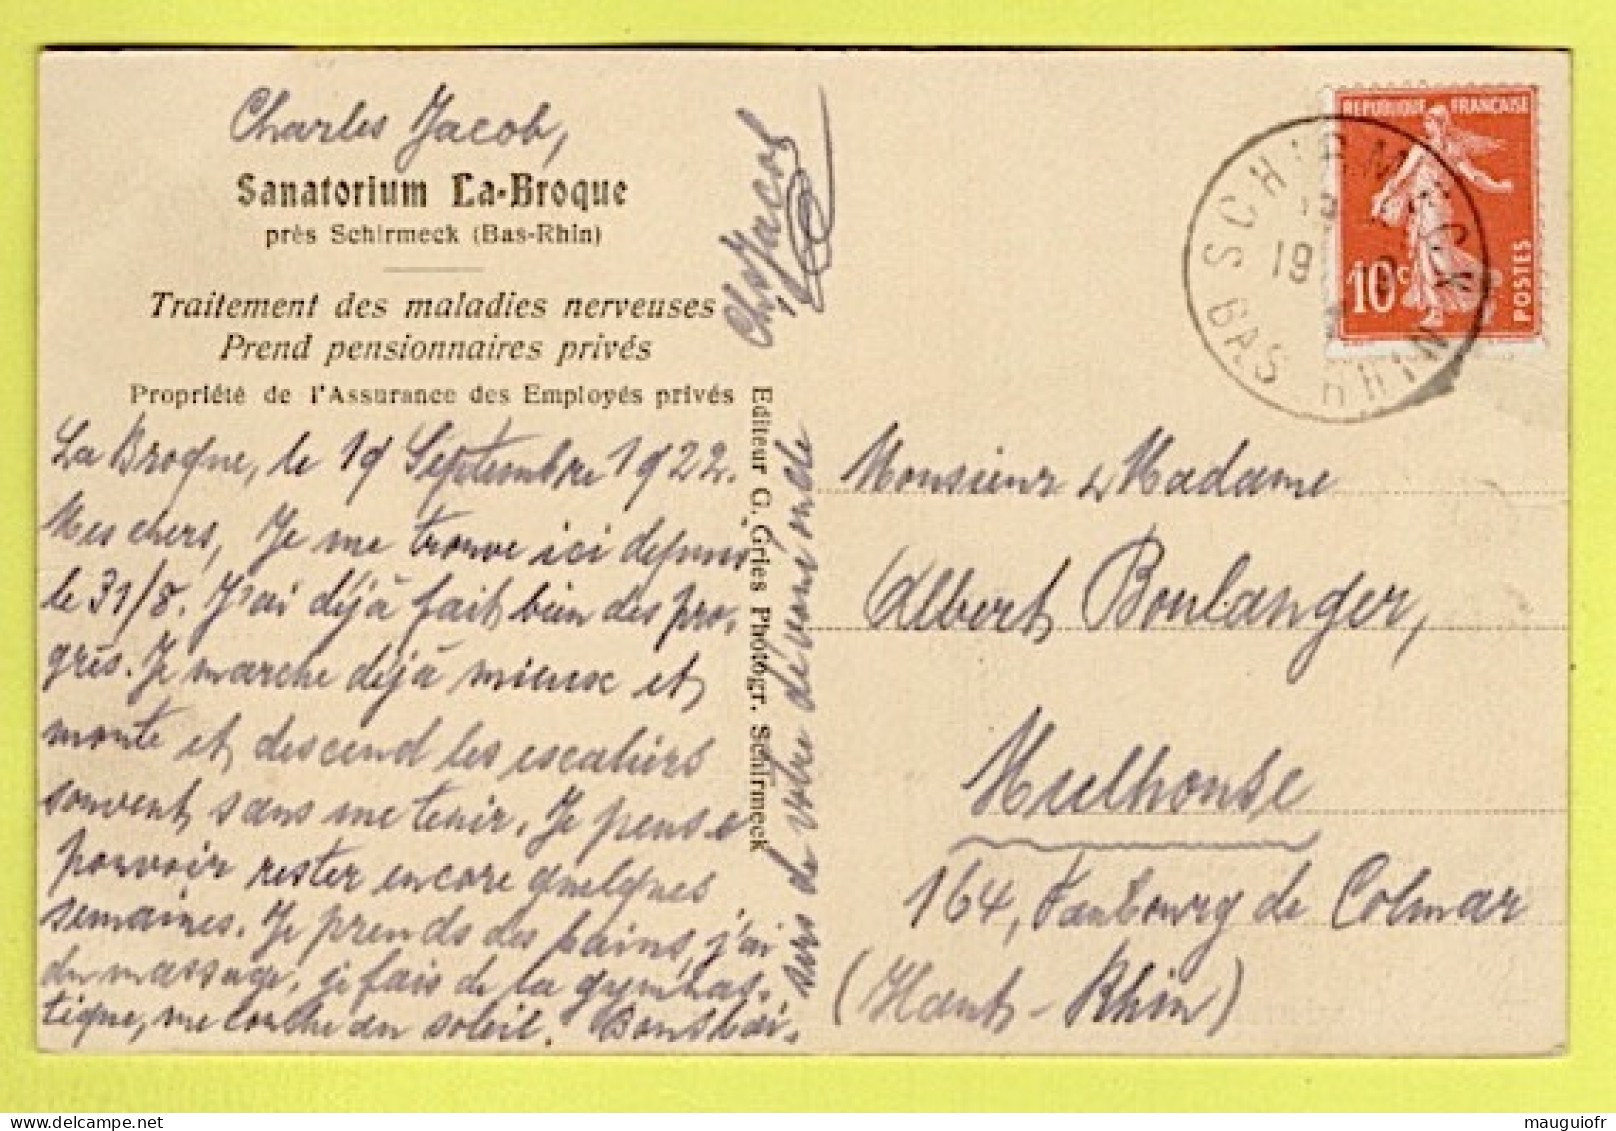 Charles Jacob,
Sanatorium La-Broque
près Schirmeck (Bas-Rhin)
Traitement des maladies nerveuses
Prend pensionnaires privés
Propriété de l'Assurance des Employés privés
La Broque, le 19 Septembre 1922.
Mes chers, Je me trouve ici depuis
le 31/8. J'ai déjà fait bien des pro-
grès. Je marche déjà mieux et
monte et descend les escaliers
souvent sans me tenir. Je pense
pouvoir rester encore quelques
semaines. Je prends des bains, j'ai
du massage, je fais de la gymnas-
tique, me couche au soleil. Bons bai-
sers de votre dévoué oncle
Chs Jacob
Editeur G. Gries Photogr. Schirmeck
REPUBLIQUE FRANÇAISE
10c
POSTES
SCHIRMECK
19
BAS RHIN
Monsieur & Madame
Albert Boulanger,
Mulhouse
164, Faubourg de Colmar
(Haut-Rhin)
mauguiofr